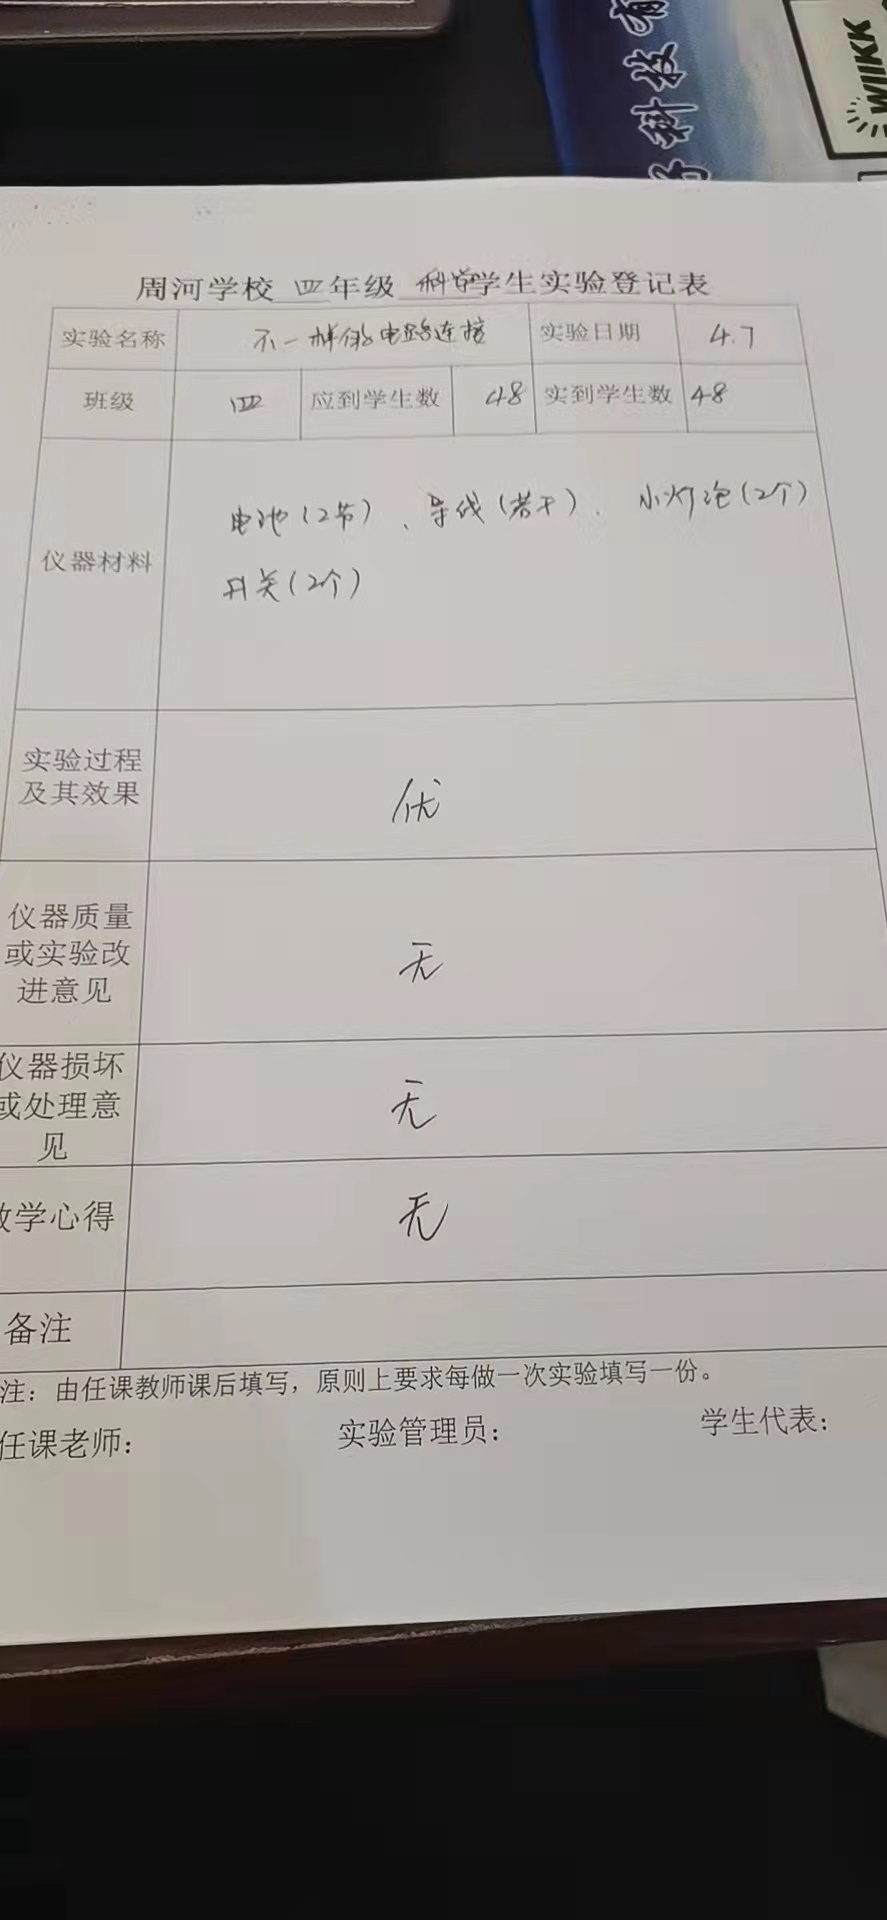 科技有
WIIKK
周河学校 四年级 科学学生实验登记表
实验名称 不一样的电路连接 实验日期 4.7
班级 四 应到学生数 48 实到学生数 48
仪器材料
电池(2节)、导线(若干)、小灯泡(2个)
开关(2个)
实验过程
及其效果
优
仪器质量
或实验改
进意见
无
仪器损坏
或处理意
见
无
教学心得 无
备注
注：由任课教师课后填写，原则上要求每做一次实验填写一份。
任课老师： 实验管理员： 学生代表：